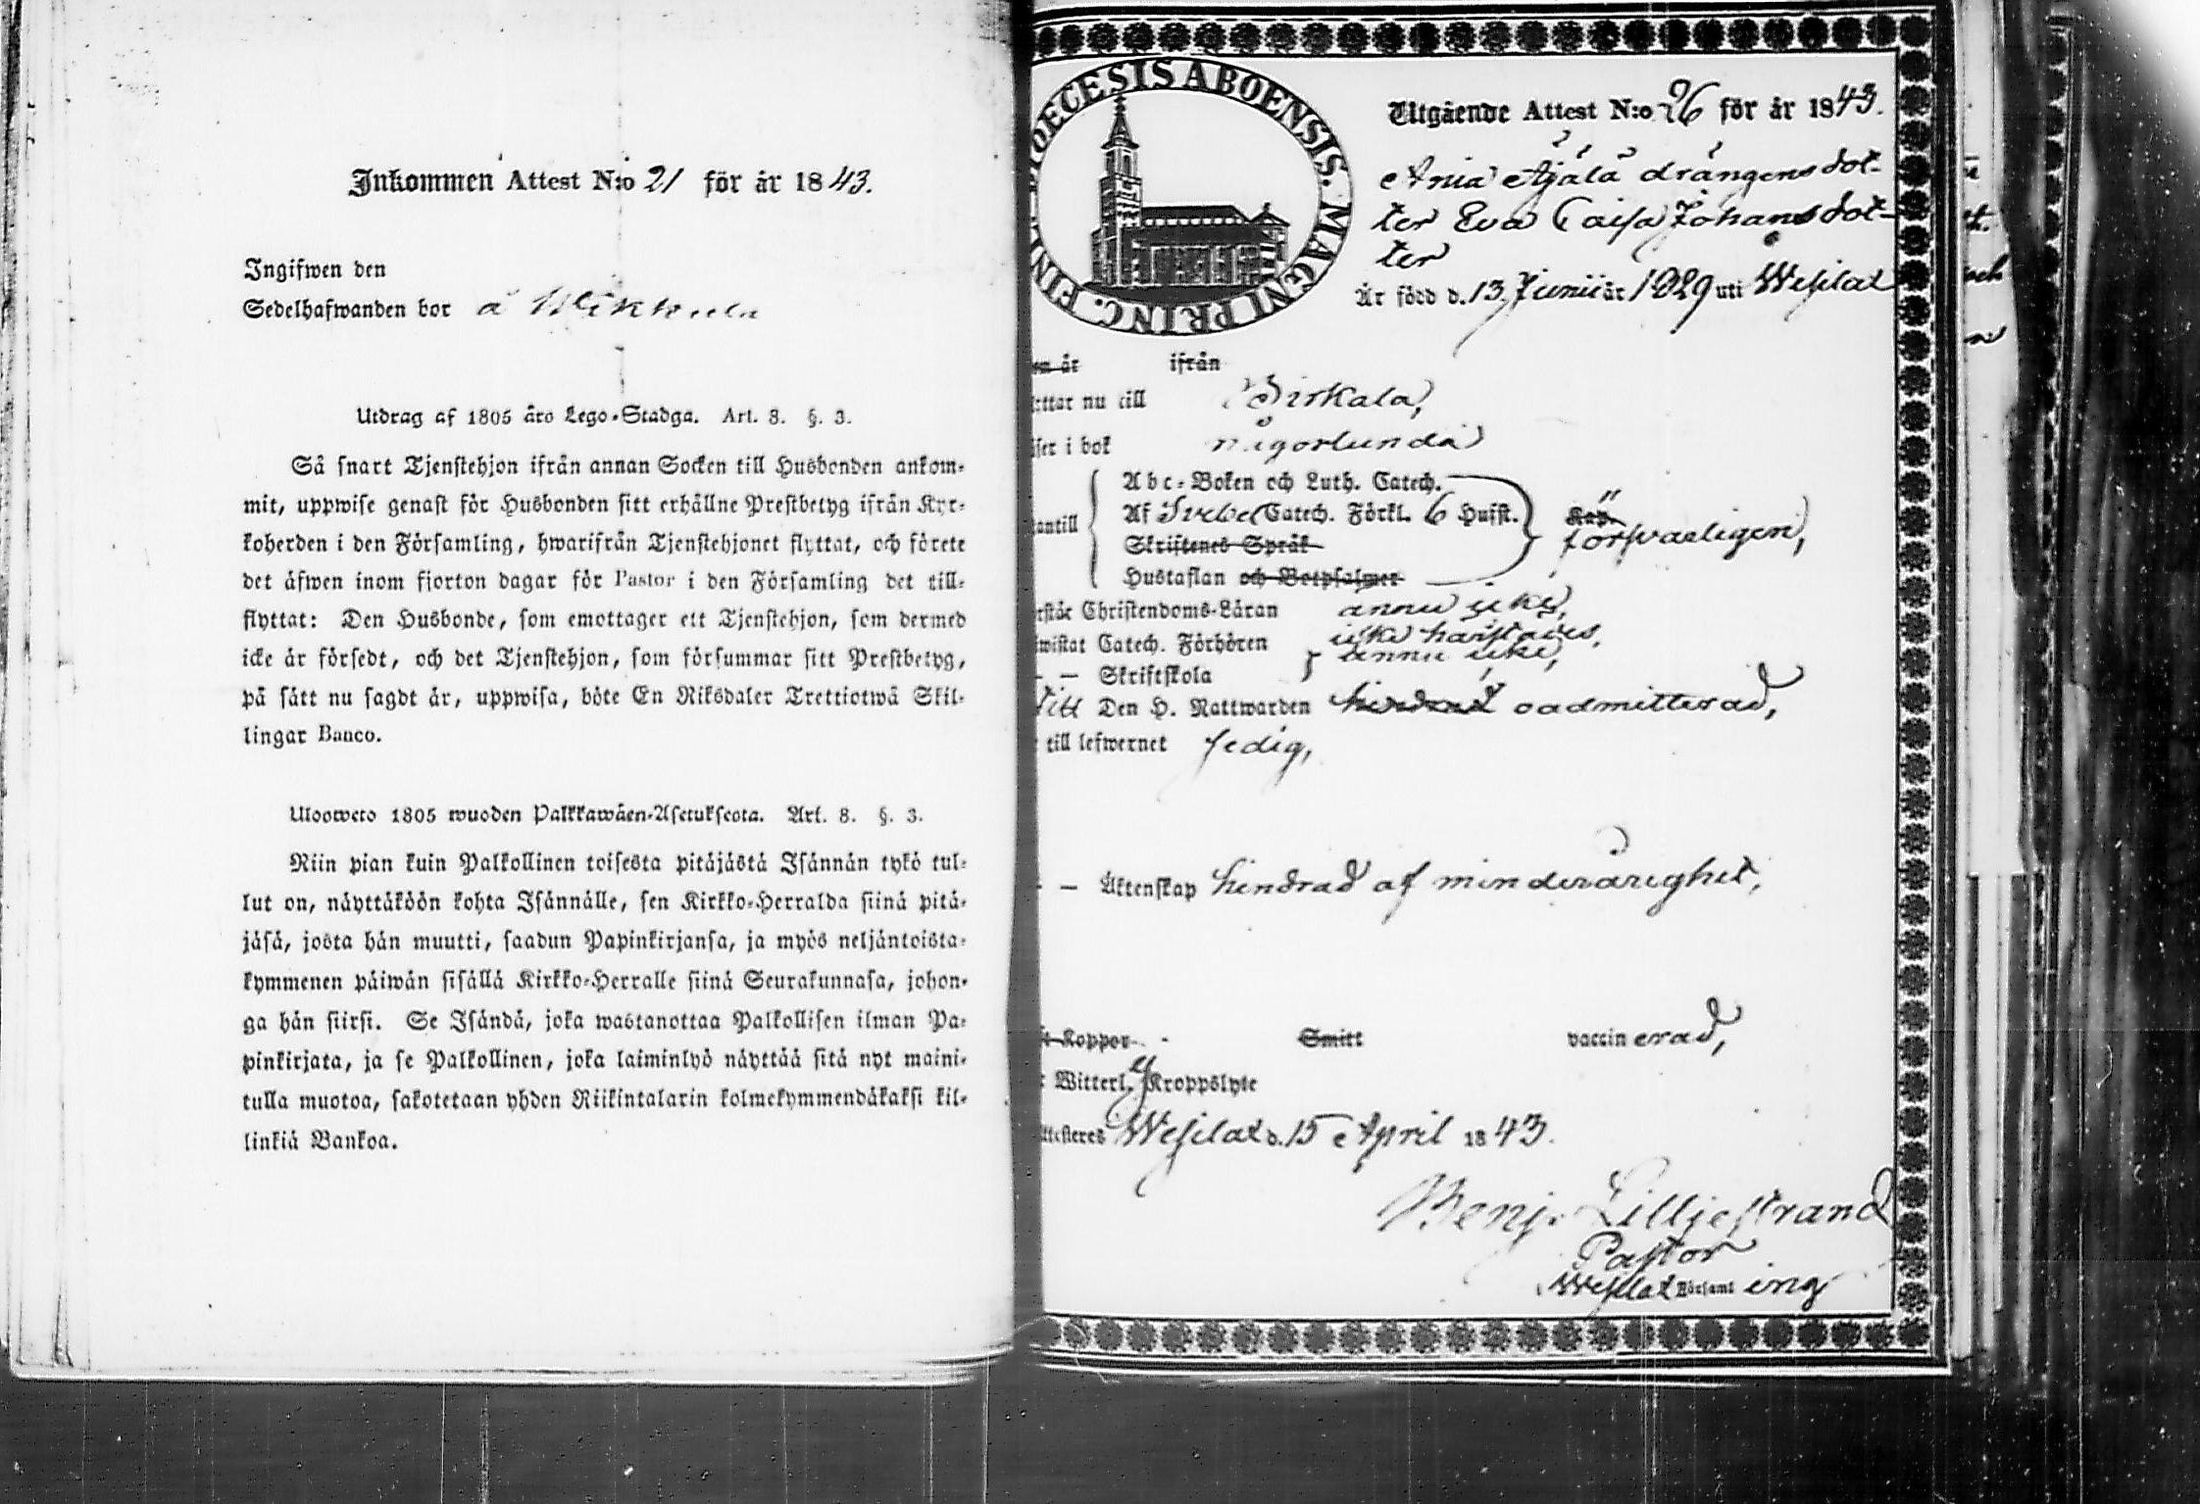 Inkommen Attest N:o 21 för år 1843.
Ingifwen den
Sedelhafwanden bor å
Utdrag af 1805 års Lego-Stadga. Art. 8. §. 3.
Så snart Tjenstehjon ifrån annan Socken till Husbonden ankom-
mit, uppwise genast för Husbonden sitt erhållne Prestbetyg ifrån Kyr-
koherden i den Församling, hwarifrån Tjenstehjonet flyttat, och förete
det äfwen inom fjorton dagar för Pastor i den Församling det till-
flyttat: Den Husbonde, som emottager ett Tjenstehjon, som dermed
icke är försedt, och det Tjenstehjon, som försummar sitt Prestbetyg,
på sätt nu sagdt är, uppwisa, böte En Riksdaler Trettiotwå Skil-
lingar Banco.
Ulosweto 1805 wuoden Palkkawäen-Asetuksesta. Art. 8. §. 3.
Niin pian kuin Palkollinen toisesta pitäjästä Isännän tykö tul-
lut on, näyttäköön kohta Isännälle, sen Kirkko-Herralda siinä pitä-
jäsä, josta hän muutti, saadun Papinkirjansa, ja myös neljäntoista-
kymmenen päiwän sisällä Kirkko-Herralle siinä Seurakunnasa, johon-
ga hän siirsi. Se Isändä, joka wastanottaa Palkollisen ilman Pa-
pinkirjata, ja se Palkollinen, joka laiminlyö näyttää sitä nyt maini-
tulla muotoa, sakotetaan yhden Riikintalarin kolmekymmendäkaksi kil-
linkiä Bankoa.
DIOECESIS ABOENSIS. MAGNI PRINC. FINL.
Utgående Attest N:o 26 för år 1843.
Ania Äjälä drängens dot-
ter Eva Caisa Johansdot-
ter
Är född d. 13 Junii år 1829 uti Wesilax
om år ifrån
ttar nu till Birkala,
ser i bok någorlunda
Abc-Boken och Luth. Catech.
Af Svebel Catech. Förkl. 6 Husst.
antill försvarligen,
Skriftenes Språk
Hustaflan och Botpsalmer
rstår Christendoms-Läran ännu icke,
wistat Catech. Förhören icke harstädes,
— — Skriftskola ännu icke,
Till Den H. Nattwarden oadmitterad,
till lefwernet ledig,
— — Äktenskap hindrad af minderårighet,
t Koppor Smitt vaccinerad,
Witterl. Kroppslyte
ttesteres Wesilax d. 15 April 1843.
Benj. Lilljestrand
Pastor
Wesilax Församling